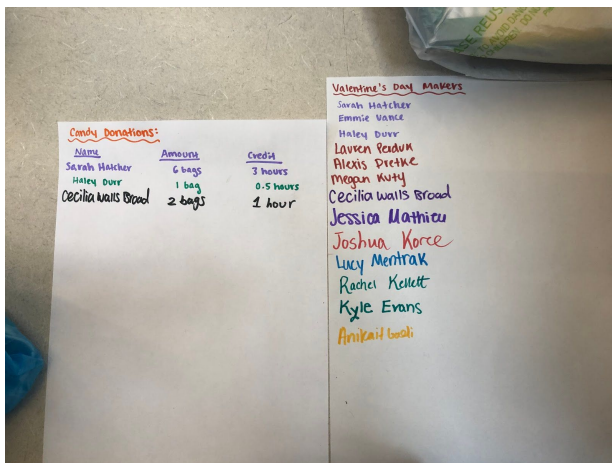 Candy Donations:
Name Amount Credit
Sarah Hatcher 6 bags 3 hours
Haley Durr 1 bag 0.5 hours
Cecilia Walls Broad 2 bags 1 hour
Valentine's Day Makers
Sarah Hatcher
Emmie Vance
Haley Durr
Lauren Perduk
Alexis Dretke
Megan Kuty
Cecilia Walls Broad
Jessica Mathieu
Joshua Korce
Lucy Mentrak
Rachel Kellett
Kyle Evans